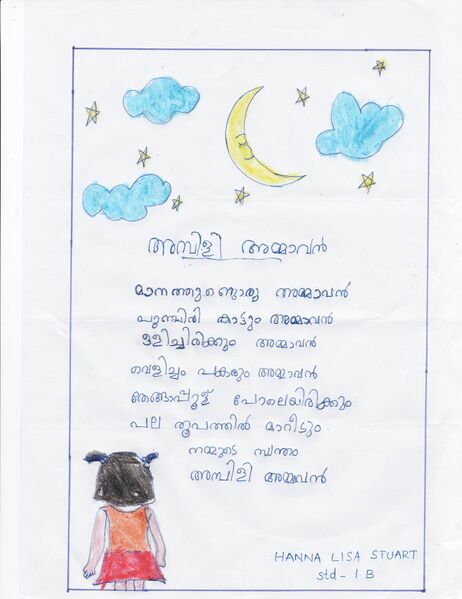 അമ്പിളി അമ്മാവൻ
മാനത്തുണ്ടൊരു അമ്മാവൻ
പുഞ്ചിരി കാട്ടും അമ്മാവൻ
ഒളിച്ചിരിക്കും അമ്മാവൻ
വെളിച്ചം പകരും അമ്മാവൻ
തേങ്ങാപ്പൂള് പോലെയിരിക്കും
പല രൂപത്തിൽ മാറീടും.
നമ്മുടെ സ്വന്തം
അമ്പിളി അമ്മാവൻ
HANNA LISA STUART
std - 1 B